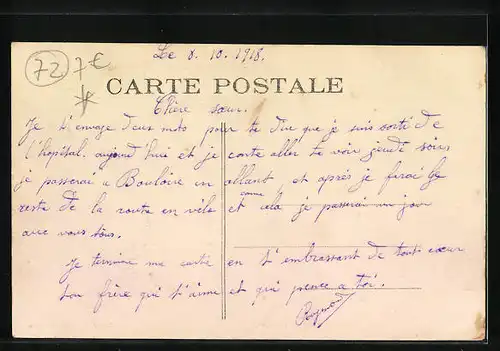 Le 8. 10. 1918.
72 7€
CARTE POSTALE
Chère sœur.
Je t'envoye deux mots pour te dire que je suis sorté de
l'hopital aujourd'hui et je conte aller te voir jeudi soir
je passerai a Bouloire en allant et après je firai le
reste de la route en vélo et comme cela je passerai un jour
avec vous tous.
Je termine ma carte en t'embrassant de tout cœur
ton frère qui t'aime et qui pence a toi.